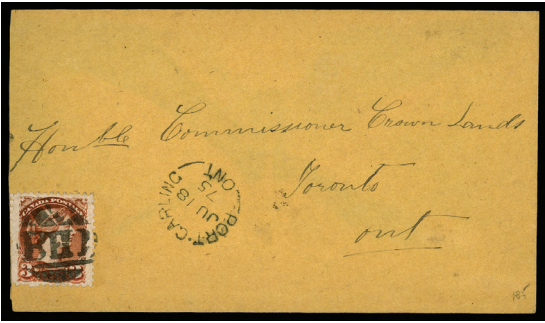 Honble Commissioner Crown Lands
Toronto
ont
PORT-CARLING ONT
JU 18
75
CANADA POSTAGE
3
185